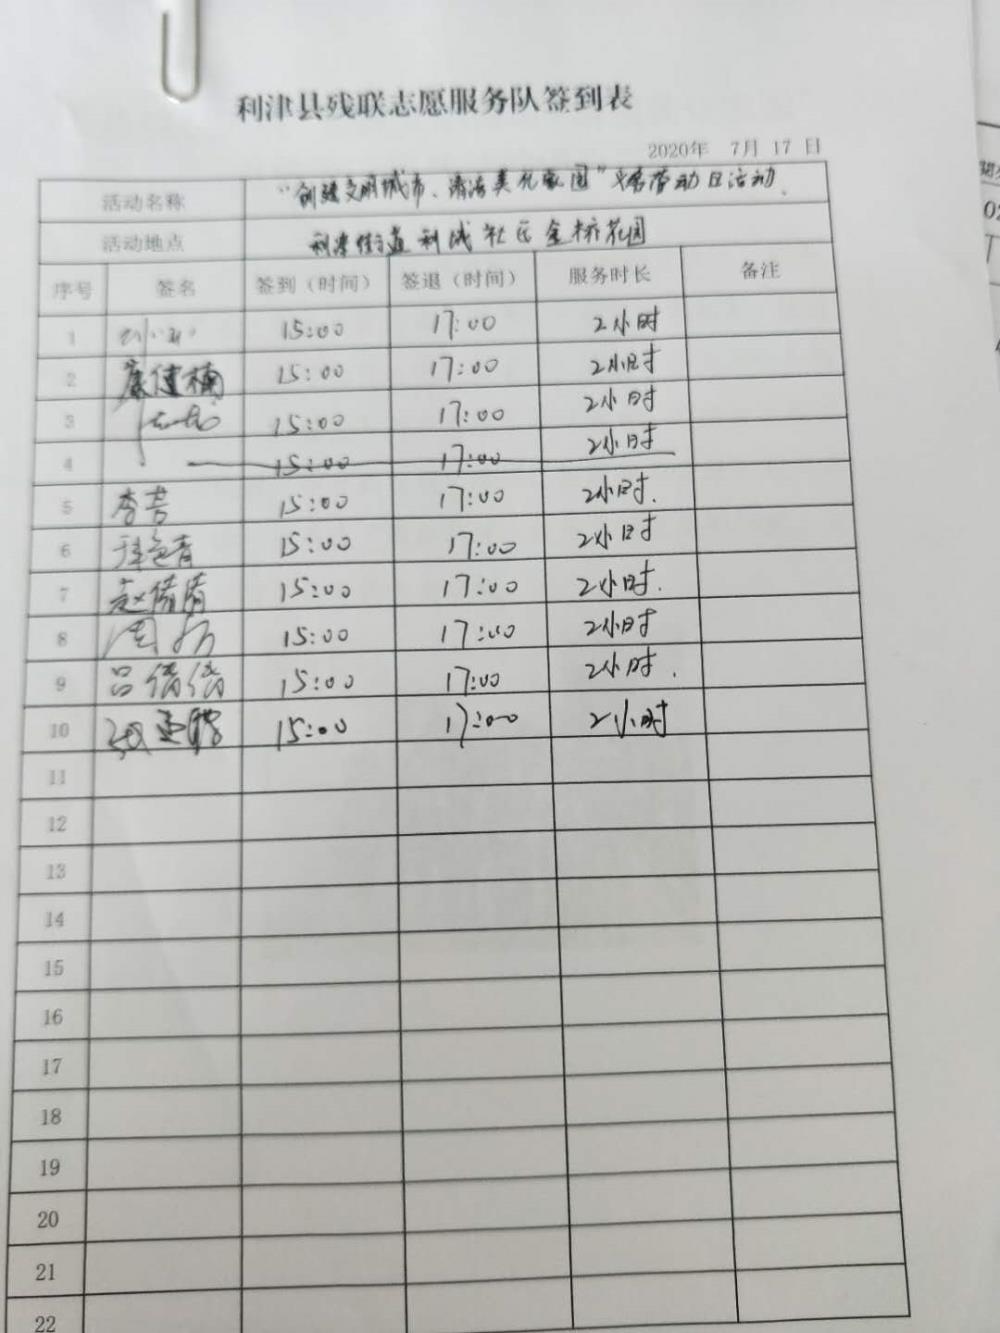 利津县残联志愿服务队签到表
2020年 7月 17 日
活动名称 "创建文明城市、清洁美化家园"义务劳动日活动
活动地点 利津街道利城社区金桥花园
序号 签名 签到（时间） 签退（时间） 服务时长 备注
1 15:00 17:00 2小时
2 康健楠 15:00 17:00 2小时
3 15:00 17:00 2小时
4 15:00 17:00 2小时
5 李芳 15:00 17:00 2小时.
6 15:00 17:00 2小时
7 赵倩倩 15:00 17:00 2小时.
8 15:00 17:00 2小时
9 吕倩倩 15:00 17:00 2小时.
10 15:00 17:00 2小时
11
12
13
14
15
16
17
18
19
20
21
22